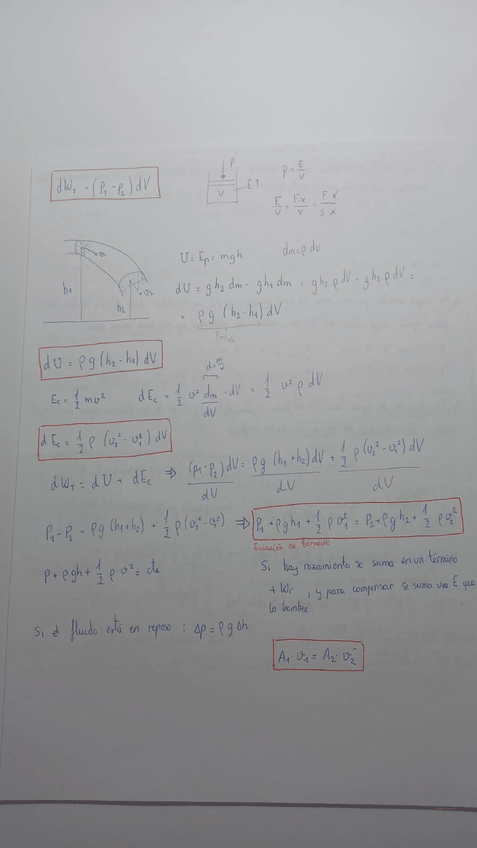 dW₁ = (P₁ - P₂) dV
P
V
E↑
p = E/V
E/V = Fx/V = Fx/sx
h₁
h₂
v₁
v₂
U = Ep = mgh
dm = ρ dV
dU = gh₂ dm - gh₁ dm = gh₂ ρ dV - gh₂ ρ dV =
= ρg (h₂-h₁) dV
dU = ρg (h₂-h₁) dV
Ec = 1/2 mv²
dEc = 1/2 v² dm/dV · dV = 1/2 v² ρ dV
dEc = 1/2 ρ (v₂² - v₁²) dV
dW_T = dU + dEc ⇒ (p₁-p₂)dV/dV = ρg (h₁+h₂) dV/dV + 1/2 ρ (v₂² - v₁²) dV/dV
P₁ - P₂ = ρg (h₁+h₂) + 1/2 ρ (v₂² - v₁²) ⇒ P₁ + ρgh₁ + 1/2 ρ v₁² = P₂ + ρgh₂ + 1/2 ρ v₂²
Ecuación de Bernoulli
P + ρgh + 1/2 ρ v² = cte
Si hay rozamiento se suma en un término
+ Wr, y para compensar se suma una E que
lo bombee.
Si el fluido está en reposo : Δp = ρgΔh
A₁ · v₁ = A₂ · v₂